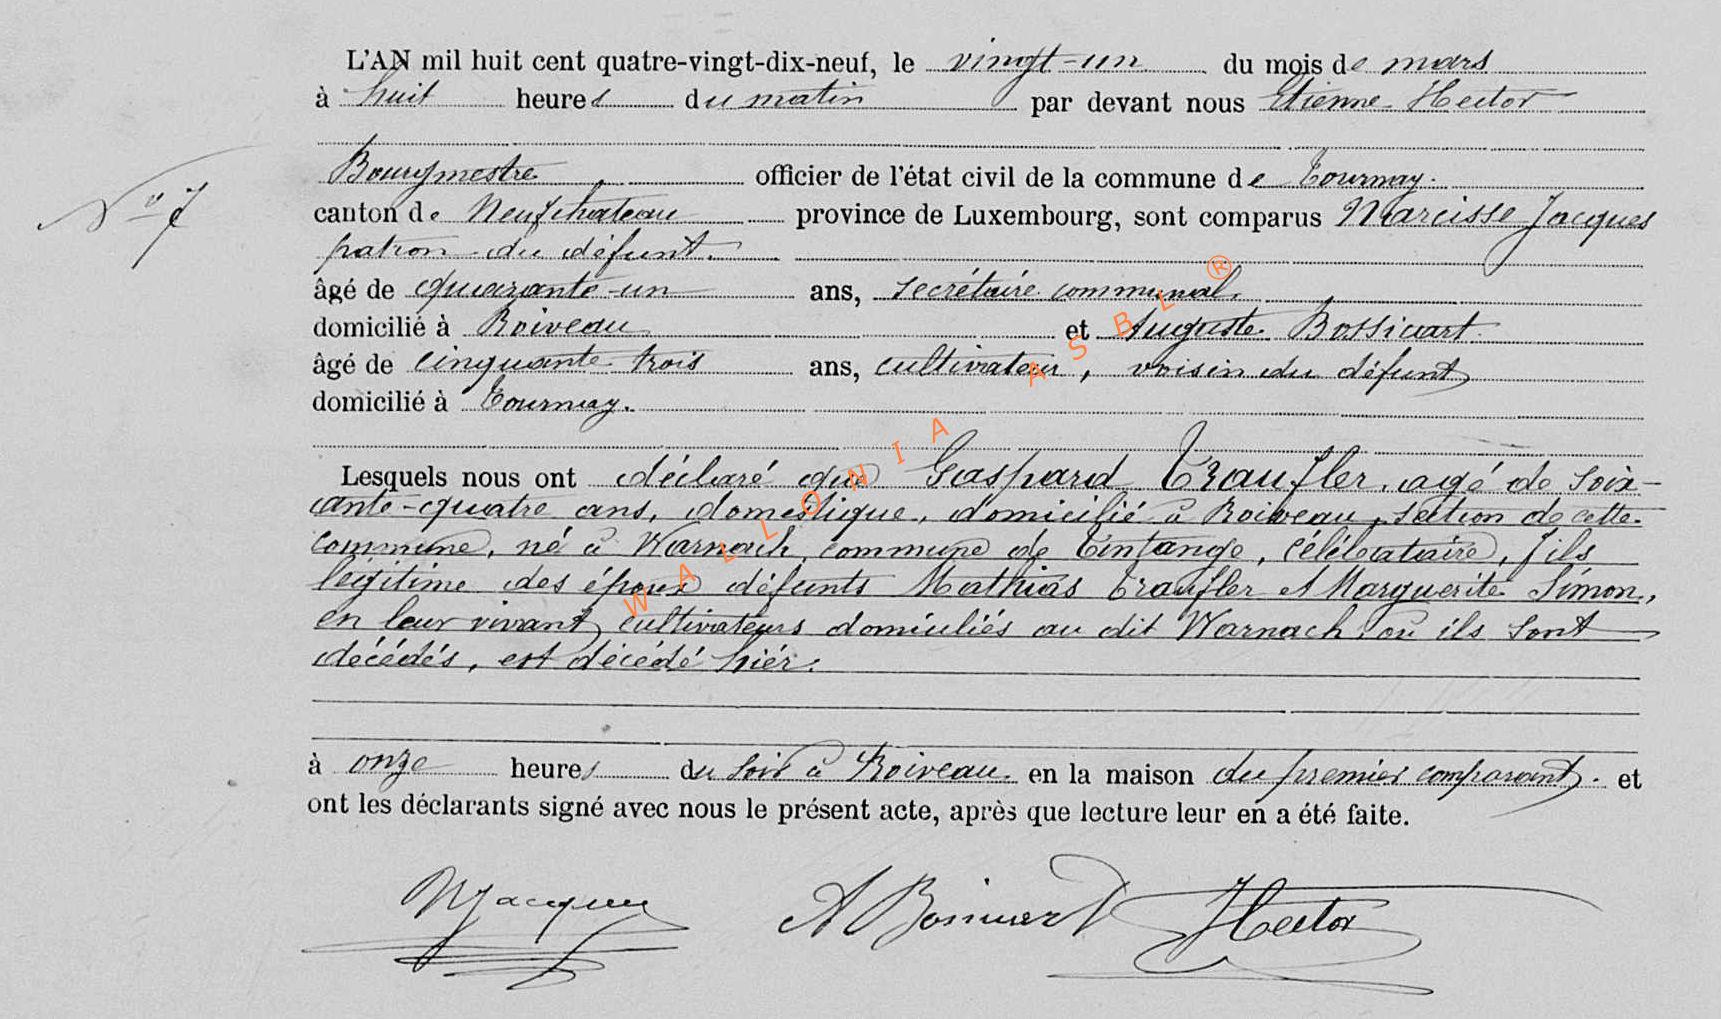 L'AN mil huit cent quatre-vingt-dix-neuf, le vingt-un du mois de mars
à huit heures du matin par devant nous Etienne Hector
Bourgmestre officier de l'état civil de la commune de Tournay.
N° 7
canton de Neufchateau province de Luxembourg, sont comparus Narcisse Jacques
patron du défunt.
âgé de quarante-un ans, secrétaire communal,
domicilié à Roiveau et Auguste Bossicart
âgé de cinquante trois ans, cultivateur, voisin du défunt
domicilié à Tournay.
Lesquels nous ont déclaré que Gaspard Traufler, agé de soix-
ante-quatre ans, domestique, domicilié à Roiveau, section de cette
commune, né à Warnach, commune de Tintange, célibataire, fils
légitime des époux défunts Mathias Traufler et Marguerite Simon,
en leur vivant cultivateurs domiciliés au dit Warnach où ils sont
décédés, est décédé hier.
à onze heures du soir à Roiveau en la maison du premier comparant. et
ont les déclarants signé avec nous le présent acte, après que lecture leur en a été faite.
NJacques A Bossicart Hector
WALLONIA ASBL ®